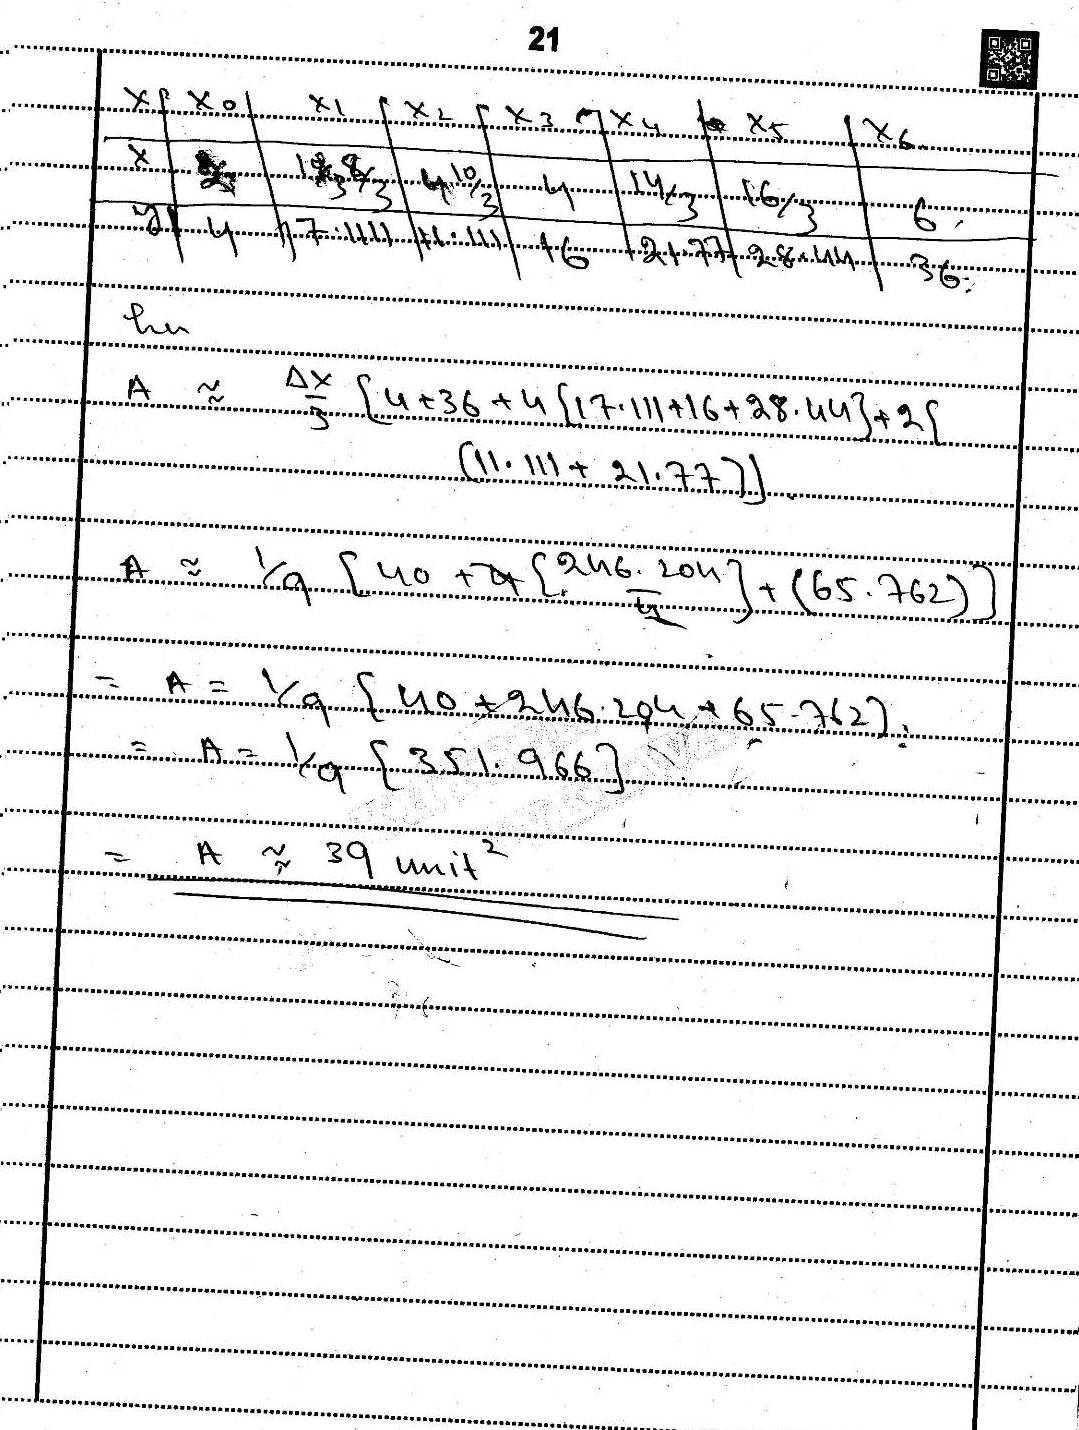 21
x | x0 | x1 | x2 | x3 | x4 | x5 | x6
x | 2 | 8/3 | 10/3 | 4 | 14/3 | 16/3 | 6.
y | 4 | 17.1111 | 11.111 | 16 | 21.77 | 28.44 | 36.
A ≈ Δx/3 [4+36+4[17.111+16+28.44]+2[
(11.111+21.77)]]
A ≈ 1/9 [40+4[246.204/4]+(65.762)]
= A = 1/9 [40+246.204+65.762].
= A = 1/9 [351.966]
= A ≈ 39 unit²